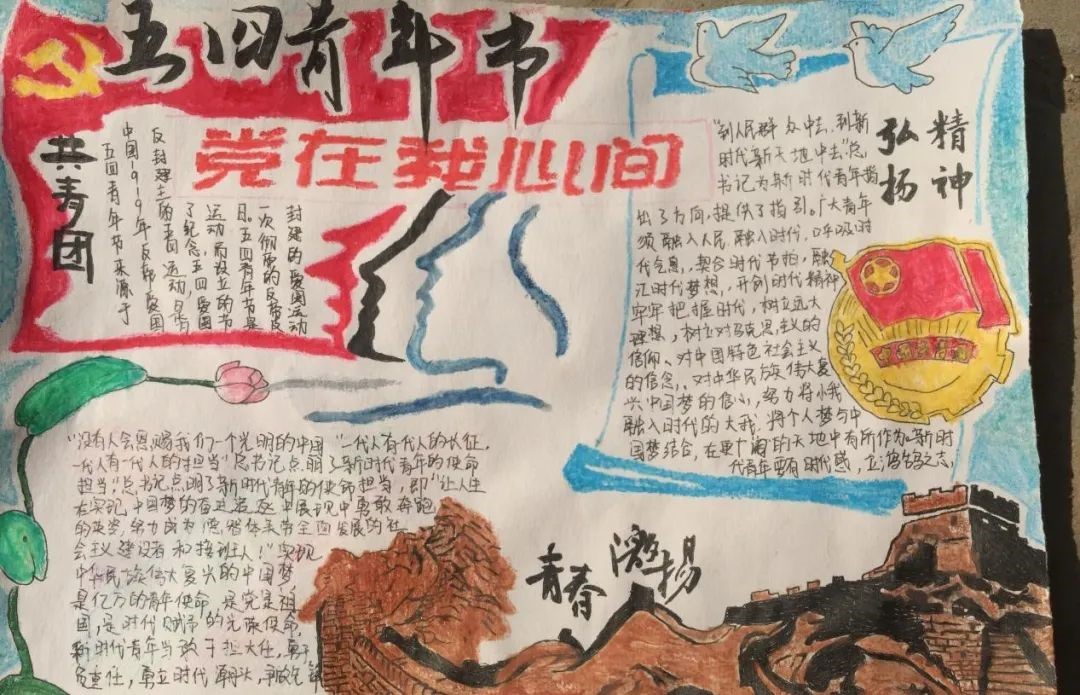 五四青年节
共青团
党在我心间
五四青年节来源于
中国1919年反帝爱国
反封建主的五四运动,是为
了纪念,五四爱国
运动而设立的节
日。五四青年节是
一次彻底的反帝反
封建的爱国运动
弘扬
精神
"到人民群众中去,到新
时代新天地中去"总
书记为新时代青年指
出了方向,提供了指引。广大青年
须融入人民,融入时代,呼吸时
代气息,契合时代节拍,融
汇时代梦想,开创时代精神
牢牢把握时代,树立远大
理想,树立对马克思主义的
信仰、对中国特色社会主义
的信念、对中华民族伟大复
兴中国梦的信心,努力将小我
融入时代的大我,将个人梦与中
国梦结合,在更广阔的天地中有所作为。新时
代青年要有时代感,立鸿鹄之志,
"没有人会恩赐我们一个光明的中国""一代人有代人的长征,
一代人有一代人的担当"总书记点明了新时代青年的使命
担当,总书记点明了新时代青年的使命担当,即"让人生
在实现中国梦的奋进追逐中展现中勇敢奔跑
的英姿,努力成为德智体美劳全面发展的社
会主义建设者和接班人!"实现
中华民族伟大复兴的中国梦
是亿万的青年使命,是党是祖
国,是时代赋予的光荣使命,
新时代青年当敢于担大任,勇于
负重任,勇立时代潮头,争做先锋
青春激扬